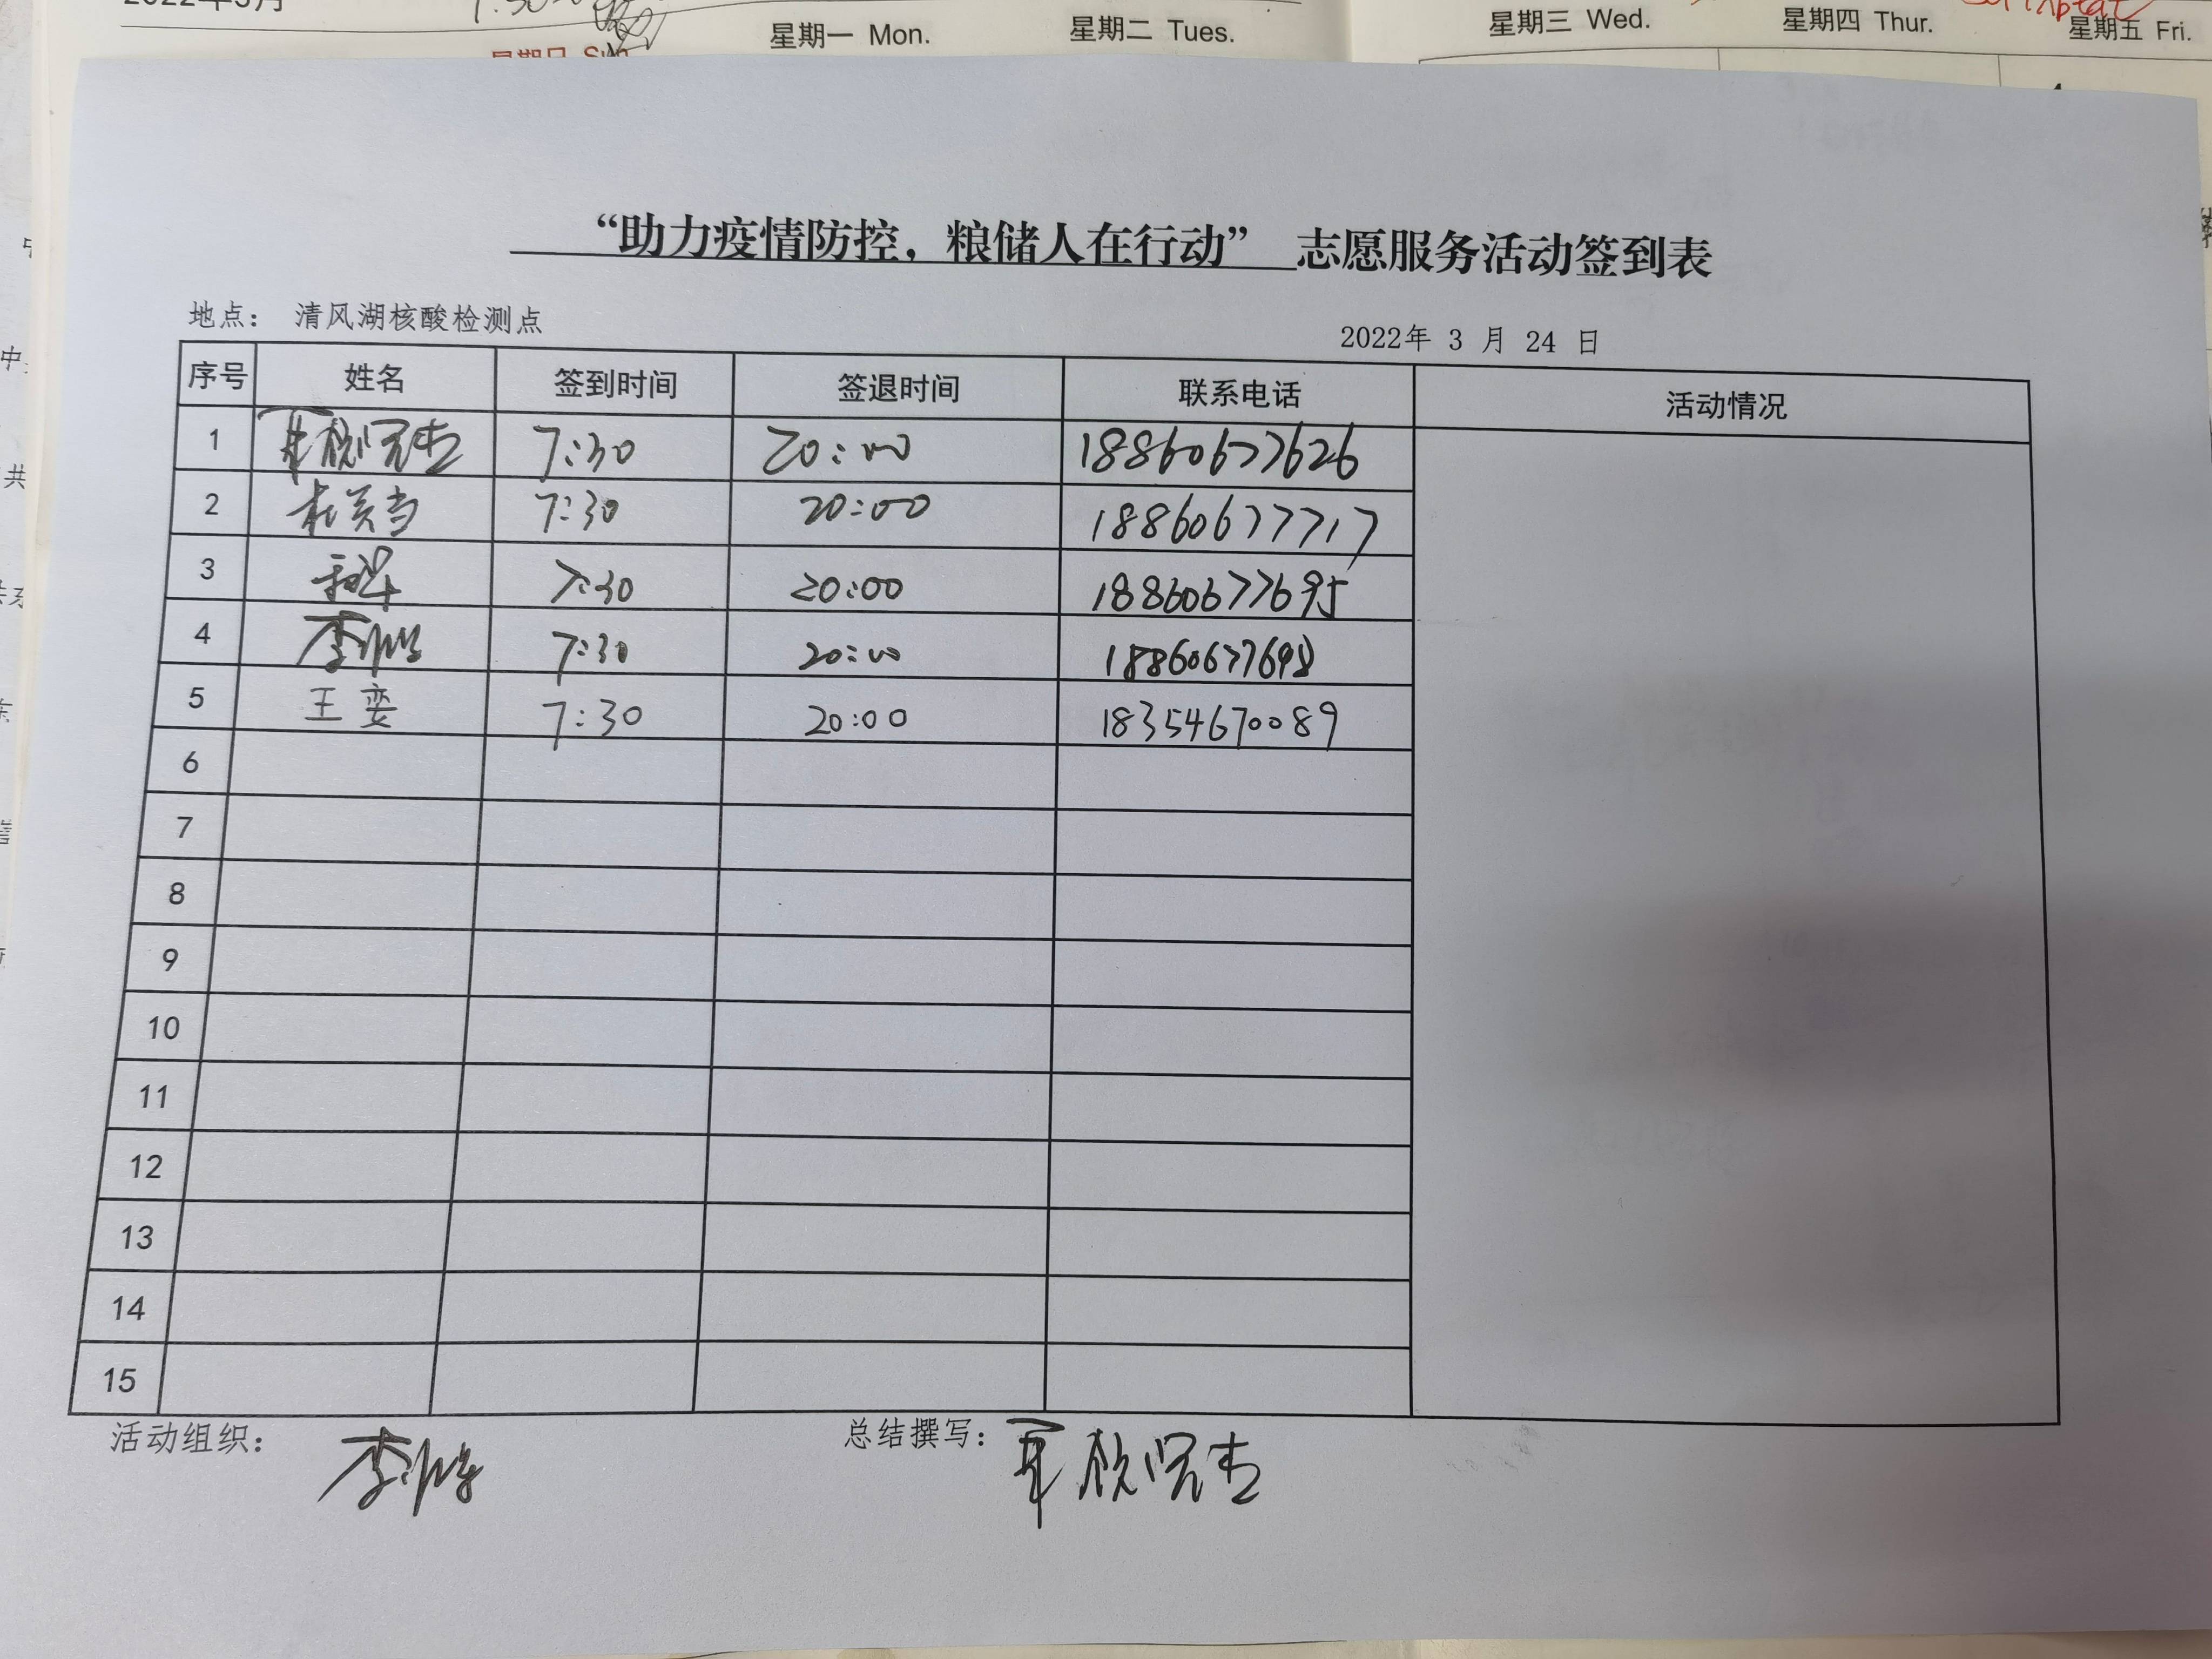 2022年3月
星期日 Sun
星期一 Mon.
星期二 Tues.
星期三 Wed.
星期四 Thur.
星期五 Fri.
“助力疫情防控，粮储人在行动” 志愿服务活动签到表
地点： 清风湖核酸检测点
2022年 3 月 24 日
序号 姓名 签到时间 签退时间 联系电话 活动情况
1 7:30 20:00 18860677626
2 7:30 20:00 18860677717
3 7:30 20:00 18860677695
4 李 7:30 20:00 18860677698
5 王娈 7:30 20:00 18354670089
6
7
8
9
10
11
12
13
14
15
活动组织： 李
总结撰写：